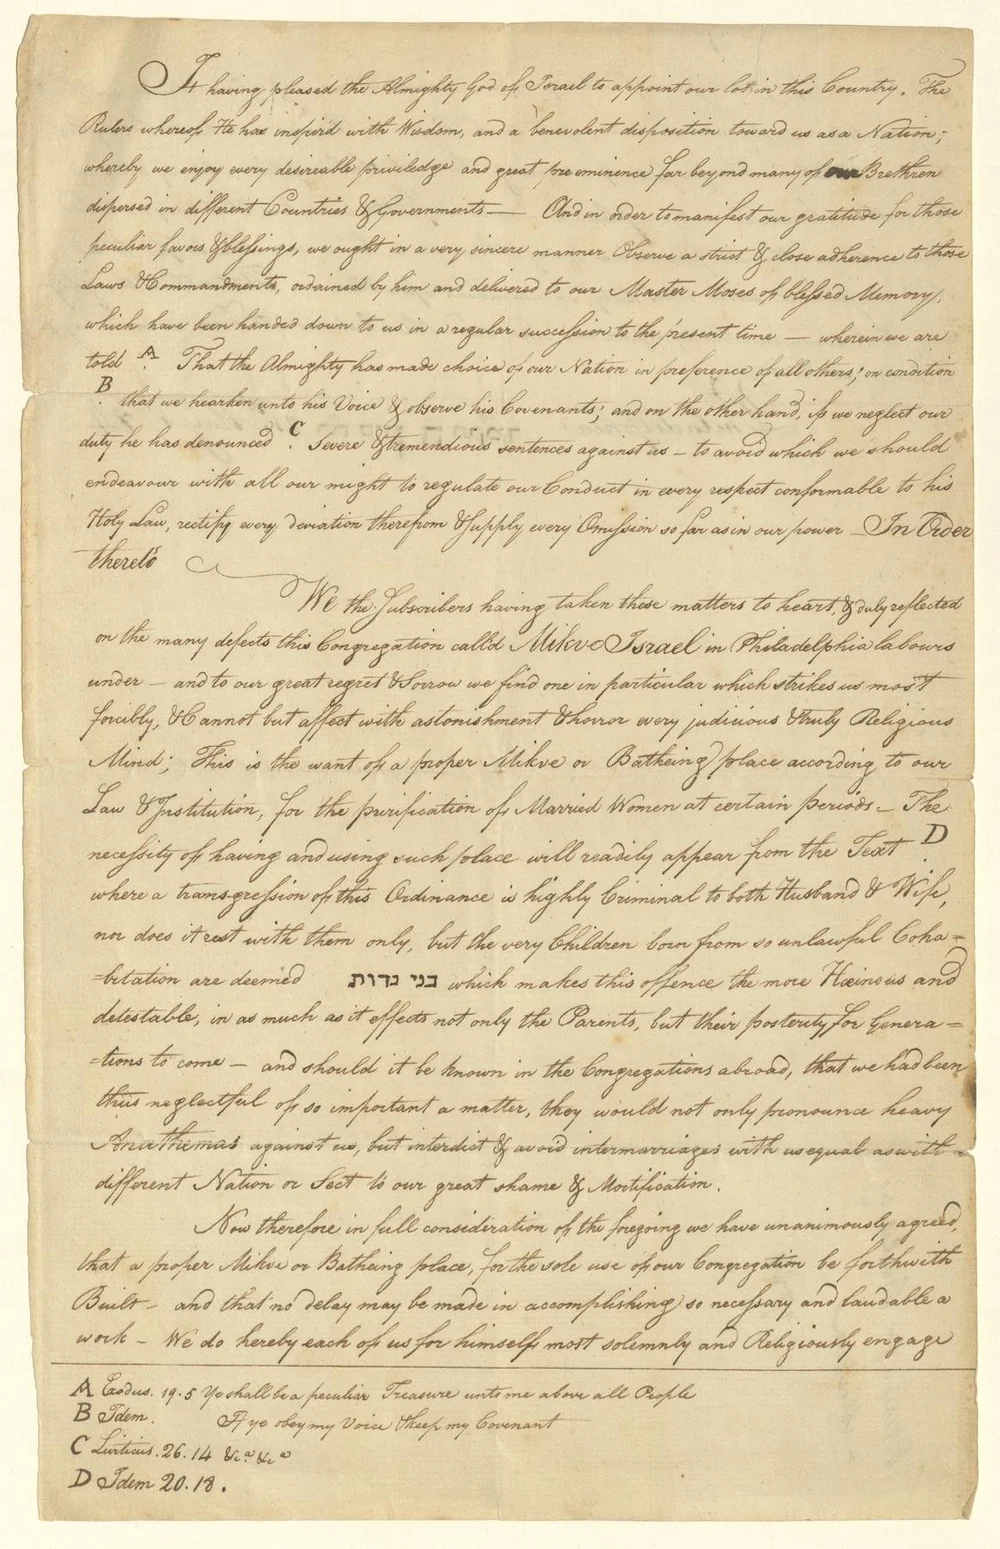 It having pleased the Almighty God of Israel to appoint our lot in this Country. The
Rulers whereof He has inspir'd with Wisdom, and a benevolent disposition toward us as a Nation;
whereby we enjoy every desireable priviledge and great preeminence far beyond many of our Brethren
dispersed in different Countries & Governments — And in order to manifest our gratitude for those
peculiar favors & blessings, we ought in a very sincere manner Observe a strict & close adherence to those
Laws & Commandments, ordained by him and delivered to our Master Moses of blessed Memory,
which have been handed down to us in a regular succession to the present time — wherein we are
told A. That the Almighty has made choice of our Nation in preference of all others; on condition
B. that we hearken unto his Voice & observe his Covenants; and on the other hand, if we neglect our
duty he has denounced C. Severe & tremendious sentences against us – to avoid which we should
endeavour with all our might to regulate our Conduct in every respect conformable to his
Holy Law, rectify every deviation therefrom & supply every Omission so far as in our power – In Order
thereto
We the Subscribers having taken these matters to heart, & duly reflected
on the many defects this Congregation call'd Mikve Israel in Philadelphia labours
under – and to our great regret & Sorrow we find one in particular which strikes us most
forcibly, & Cannot but affect with astonishment & horror every judicious & truly Religious
Mind; This is the want of a proper Mikve or Batheing place according to our
Law & Institution, for the purification of Married Women at certain periods – The
necessity of having and using such place will readily appear from the Text D.
where a transgression of this Ordinance is highly Criminal to both Husband & Wife,
nor does it rest with them only, but the very Children born from so unlawful Coha=
=bitation are deemed בני נדות which makes this offence the more Heinous and
detestable, in as much as it effects not only the Parents, but their posterity for Genera=
=tions to come – and should it be known in the Congregations abroad, that we had been
thus neglectful of so important a matter, they would not only pronounce heavy
Anathemas against us, but interdict & avoid intermarriages with us equal as with
different Nation or Sect to our great shame & Mortification.
Now therefore in full consideration of the foregoing we have unanimously agreed,
that a proper Mikve or Batheing place, for the sole use of our Congregation be forthwith
Built – and that no delay may be made in accomplishing so necessary and laudable a
work – We do hereby each of us for himself most solemnly and Religiously engage
A Exodus. 19.5 Ye shall be a peculiar Treasure unto me above all People
B Idem. If ye obey my Voice & keep my Covenant
C Liviticus. 26. 14 &cª &cª
D Idem 20. 18.